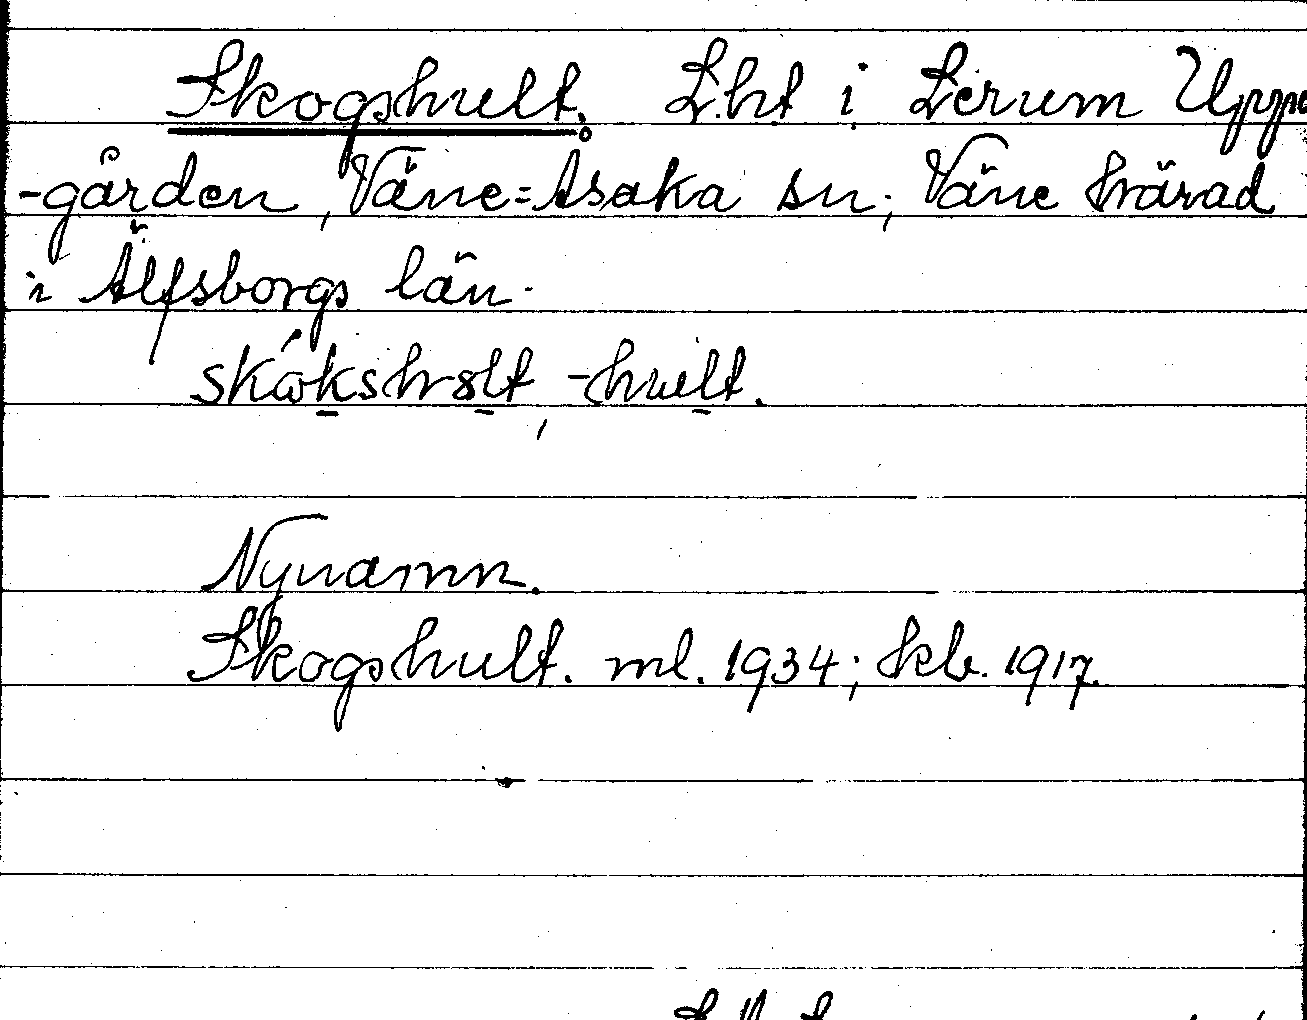 Skogshult. L.ht i Lerum Uppe
-gården, Väne=Åsaka sn; Väne härad
i Älfsborgs län.
-hult.
Nynamn.
Skogshult. ml. 1934; Skb. 1917.